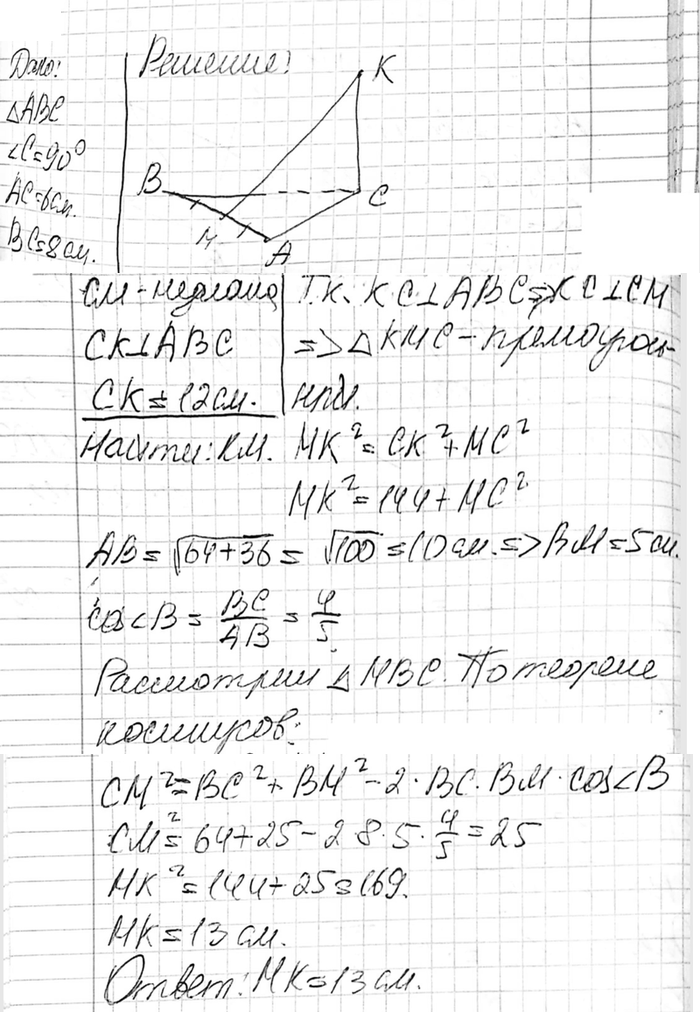 Дано:
△ABC
∠C=90°
AC=6см.
BC=8см.
Решение:
K
B
C
M
A
CM-медиана
CK⊥ABC
CK=12см.
Найти: KM.
Т.К. KC⊥ABC=>KC⊥CM
=>△KMC-прямоуголь-
ный.
MK²=CK²+MC²
MK²=144+MC²
AB=√64+36=√100=10см.=>BM=5см.
cos∠B=BC/AB=4/5
Рассмотрим △MBC. По теореме
косинусов:
CM²=BC²+BM²-2·BC·BM·cos∠B
CM²=64+25-2 8·5·4/5=25
MK²=144+25=169.
MK=13см.
Ответ: MK=13см.